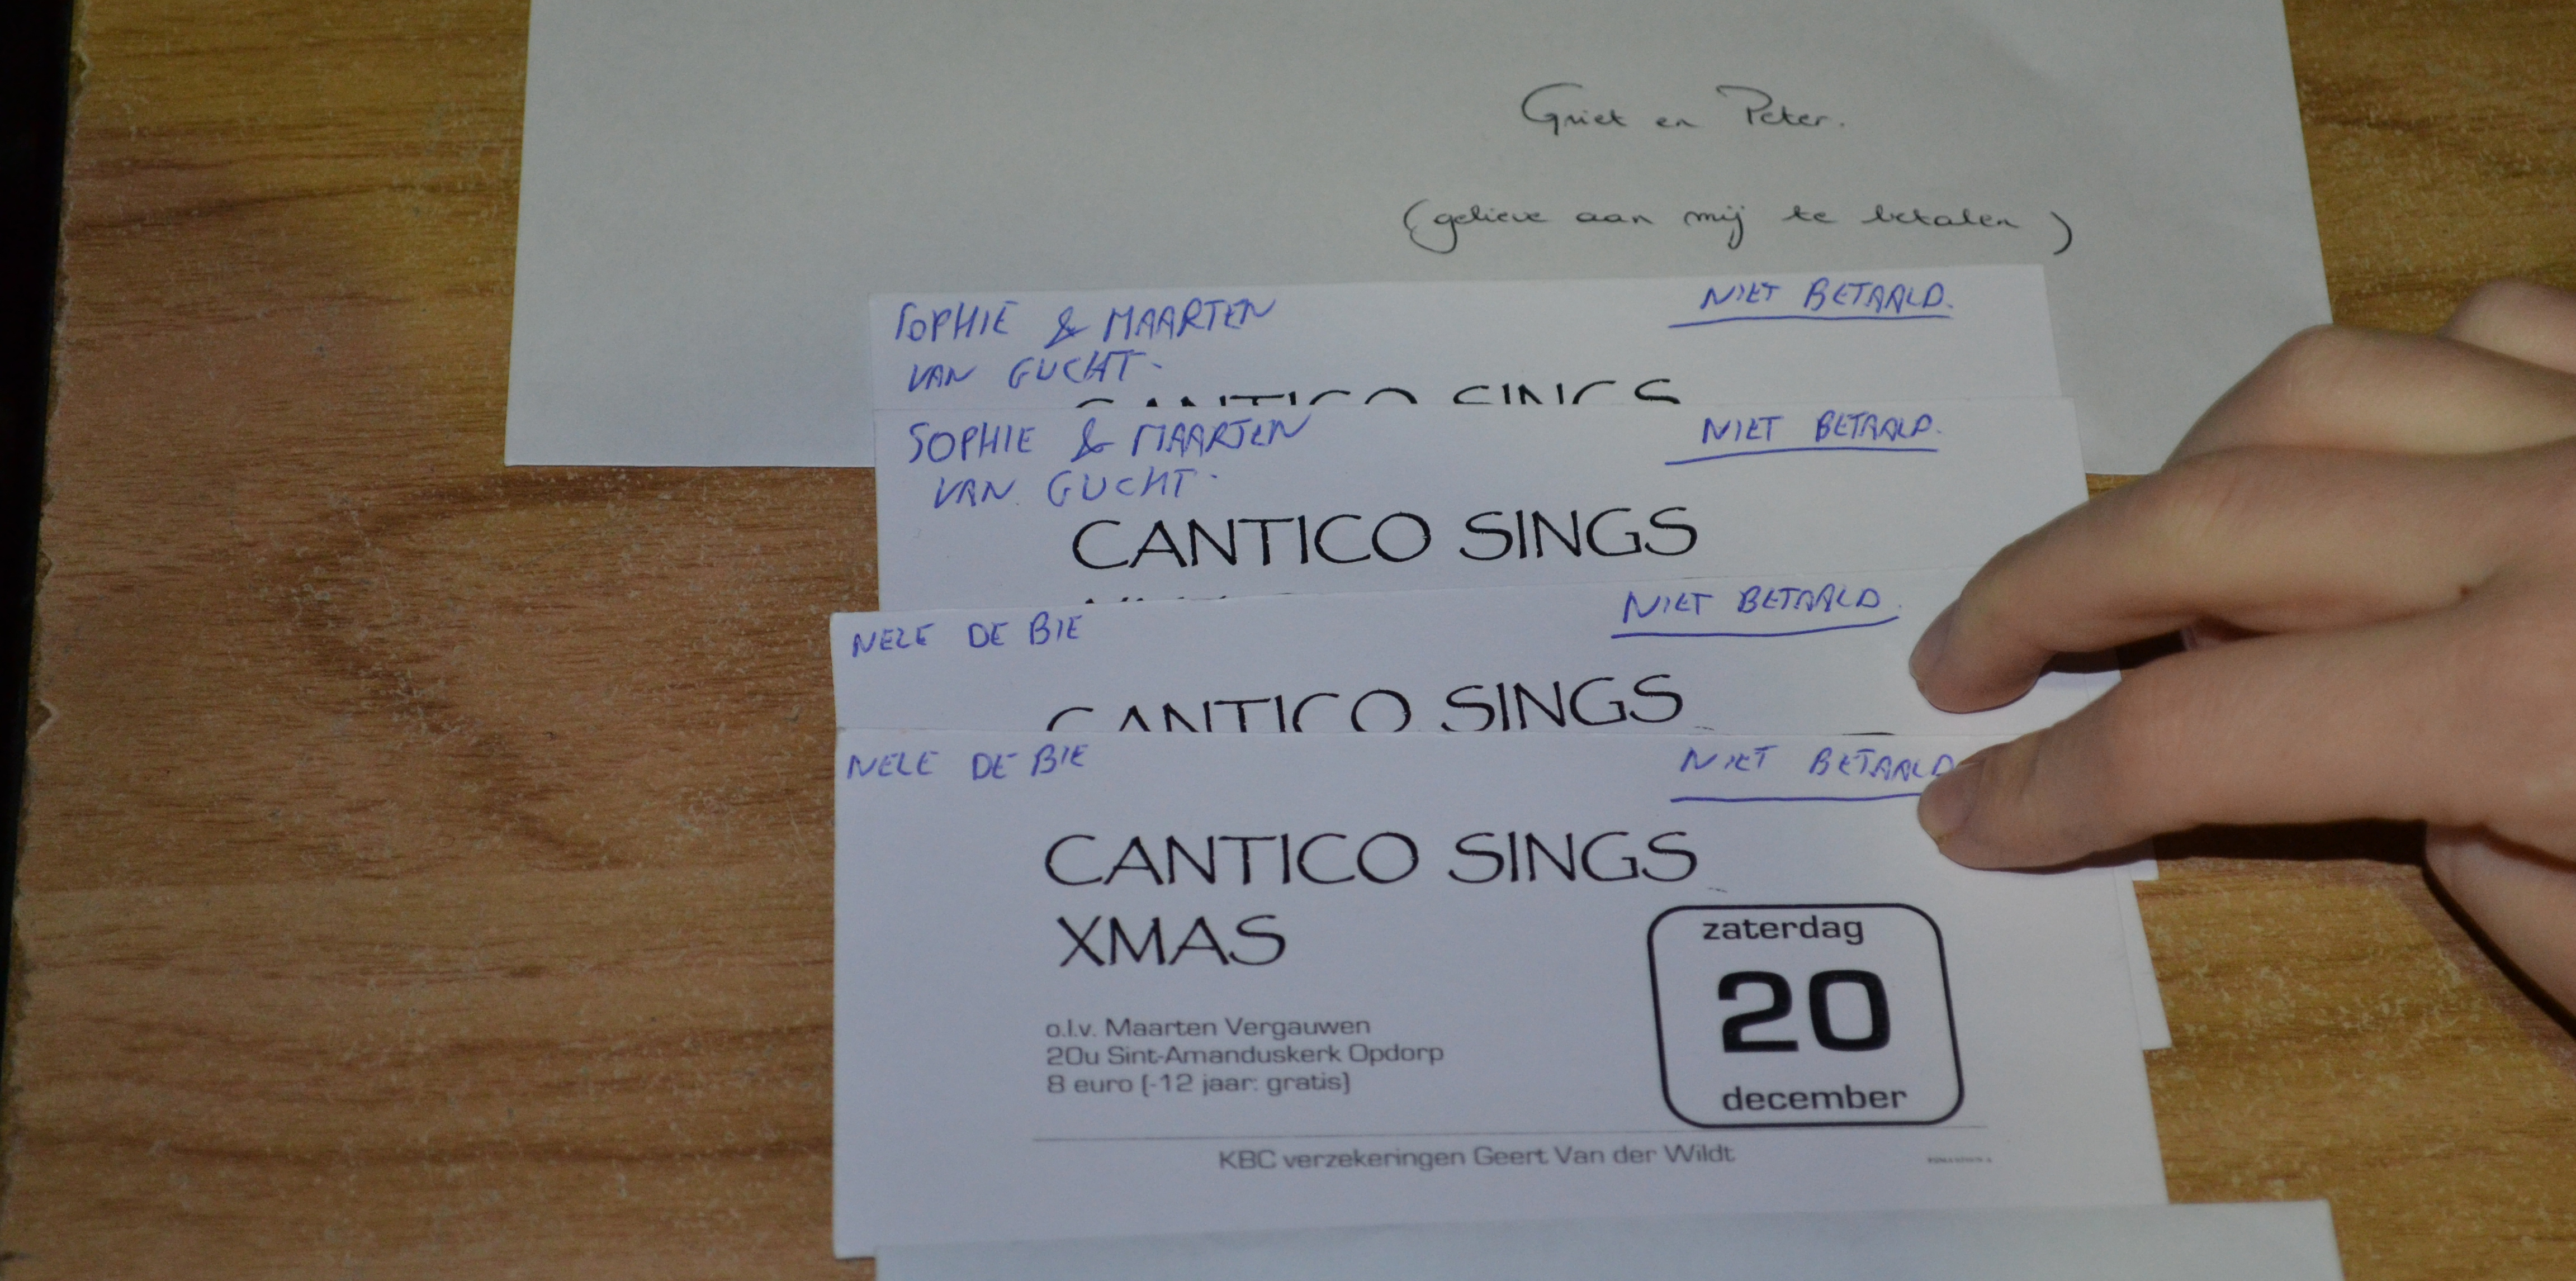 Griet en Peter.
(gelieve aan mij te betalen)
SOPHIE & MAARTEN
VAN GUCHT.
NIET BETAALD.
CANTICO SINGS
SOPHIE & MAARTEN
VAN GUCHT.
NIET BETAALD.
CANTICO SINGS
NELE DE BIE
NIET BETAALD.
CANTICO SINGS
NELE DE BIE
NIET BETAALD
CANTICO SINGS
XMAS
zaterdag
20
december
o.l.v. Maarten Vergauwen
20u Sint-Amanduskerk Opdorp
8 euro (-12 jaar: gratis)
KBC verzekeringen Geert Van der Wildt